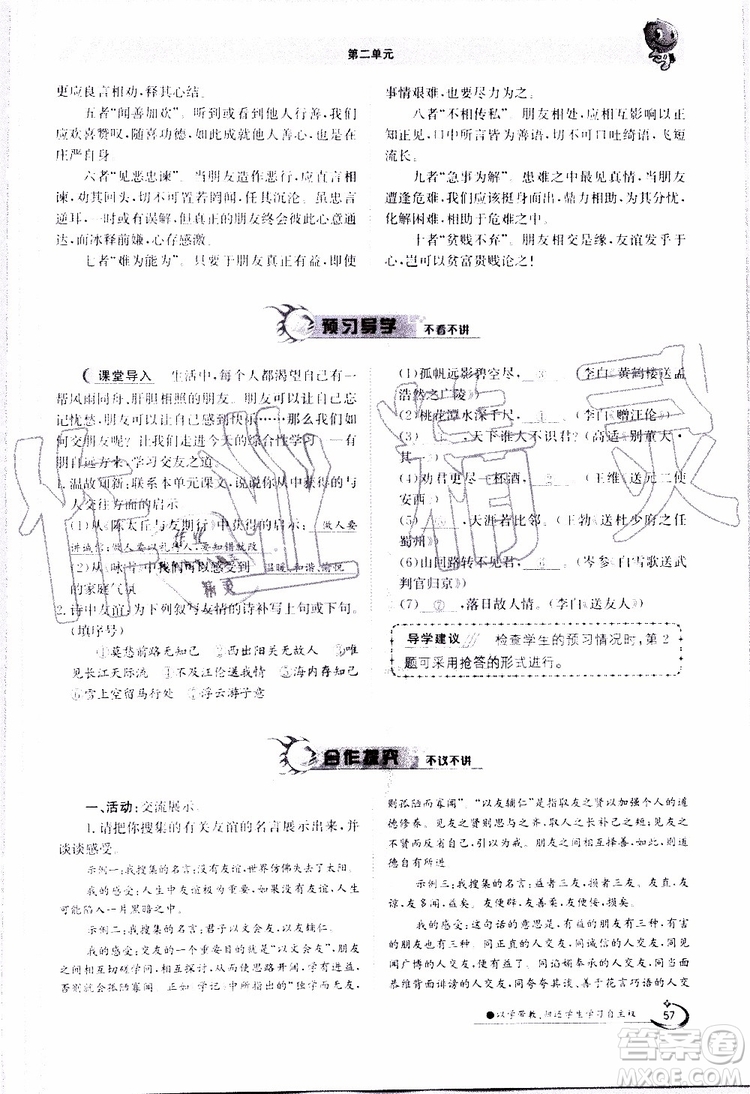 第二单元
更应良言相劝，释其心结。
五者“闻善加欢”。听到或看到他人行善，我们
应欢喜赞叹，随喜功德，如此能成就他人善心，也在
庄严自身。
六者“见恶忠谏”。当朋友造作恶行，应直言相
谏，劝其回头，切不可视若罔闻，任其沉沦。虽忠言
逆耳，一时或有误解，但真正的朋友终会扪心意通
达，而冰释前嫌，心存感激。
七者“难为能为”。只要于朋友真正有益，即使
事情艰难，也应当仁不让。
八者“不相传私”。朋友相处，应以真诚，行于正
知正见，口中所言皆为善语，切不可口吐绮语，飞短
流长。
九者“急事为解”。患难之中见真情，当朋友
遭逢危难，我们应该挺身而出，鼎力相助，与其分忧，
化解困难，助其于危难之中。
十者“贫贱不弃”。朋友相交是缘，友谊发乎于
心，岂可以贫富贵贱论之！
预习导学 不看不讲
课堂导入 生活中，每个人都渴望朋友。我们渴望有一
帮风雨同舟、肝胆相照的朋友。忘不了
记忧愁，朋友给我们快乐……那么我们如
何交朋友呢？让我们走进今天的综合性学习
，学习交友之道。
1.温故知新：联系本单元课文，说说你从中获得的与
人交往方面的启示
(1)从《陈太丘与友期行》中获得的启示： 做人要
讲诚信；做人要以礼待人，要知错就改
(2)从《咏雪》中我们可以感受到 温暖、和谐、愉悦
的家庭气氛
2.诗中友谊：为下列叙写友情的诗补写上句或下句。
（填序号）
①莫愁前路无知己 ②西出阳关无故人 ③唯
见长江天际流 ④不及汪伦送我情 ⑤海内存知己
⑥雪上空留马行处 ⑦浮云游子意
(1)孤帆远影碧空尽， ③ （李白《黄鹤楼送孟
浩然之广陵》）
(2)桃花潭水深千尺， （李白《赠汪伦》）
(3) ，天下谁人不识君？（高适《别董大》
其一）
(4)劝君更尽一杯酒， （王维《送元二使
安西》）
(5) ，天涯若比邻。（王勃《送杜少府之任
蜀州》）
(6)山回路转不见君， （岑参《白雪歌送武
判官归京》）
(7) ⑦ ，落日故人情。（李白《送友人》）
导学建议 检查学生的预习情况时，第2
题可采用抢答的形式进行。
合作探究 不议不讲
一、活动：交流展示。
1.请把你搜集的有关友谊的名言展示出来，并
谈谈感受。
示例一：我搜集的名言：没有友谊，世界仿佛失去了太阳。
我的感受：人生中友谊是很重要的，如果没有友谊，人生就
可能陷入一片黑暗之中。
示例二：我搜集的名言：君子以文会友，以友辅仁。
我的感受：交友的一个重要目的就是“以文会友”，朋友
在相互切磋学问中，可以触发灵感，思路开阔，学有进益。
否则就会孤陋寡闻。正如《学记》中所说的“独学而无友，
则孤陋而寡闻”。“以友辅仁”是指取友之贤以加强个人的道
德修养。见友之贤则思与之齐，从而见贤思齐；见友之
不贤则自省，从而改过迁善。朋友间也相互择善，如此则道
德自高。
示例三：我搜集的名言：益者三友，损者三友。友直，友
谅，友多闻，益矣。友便辟，友善柔，友便佞，损矣。
我的感受：这句话的意思是，有益的交友有三种，有害的
交友有三种。同正直的人交友，同诚信的人交友，同见
闻广博的人交友，这是有益的。同谄媚奉承的人交友，同当
面恭维背面诽谤的人交友，同夸夸其谈、善于花言巧语的人交
友，这是有害的。
●以学带教，归还学生学习自主权
57